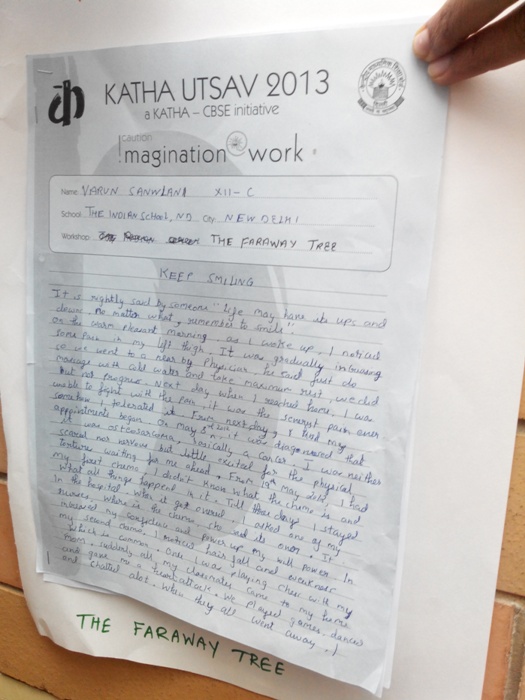 KATHA UTSAV 2013
a KATHA – CBSE initiative
caution
!magination @ work
Name VARUN SANWLANI XII-C
School THE INDIAN SCHOOL, ND City NEW DELHI
Workshop THE FARAWAY TREE
KEEP SMILING
It is rightly said by someone "Life may have its ups and
downs. No matter what, remember to smile"
On the warm pleasant morning, as I woke up, I noticed
some pain in my left thigh. It was gradually increasing
so we went to a near by Physician. He said just do
massage with cold water and take maximum rest, we did
but no progress. Next day when I reached home, I was
unable to fight with the pain, it was the severest pain ever
somehow I tolerated it. From next day, I had my
appointments began. On may it was diagonased that
it was osteosarcoma, basically a cancer. I was neither
scared nor nervous but little excited for the physical
tortures waiting for me ahead. From 13th May 2011, I had
my first chemo, I didn't know what the chemo is and
what all things happend in it. Till three days I stayed
in the hospital. When it got over I asked one of my
nurses, where is the chemo its over. It
increased my confidence and power up my will power. In
my second chemo, I noticed hair fall and weakness
which is common. Once I was playing chess with my
mom, suddenly all my classmates came to my home
and gave me a . We played games, danced
and chatted alot. When they all went away, I
THE FARAWAY TREE